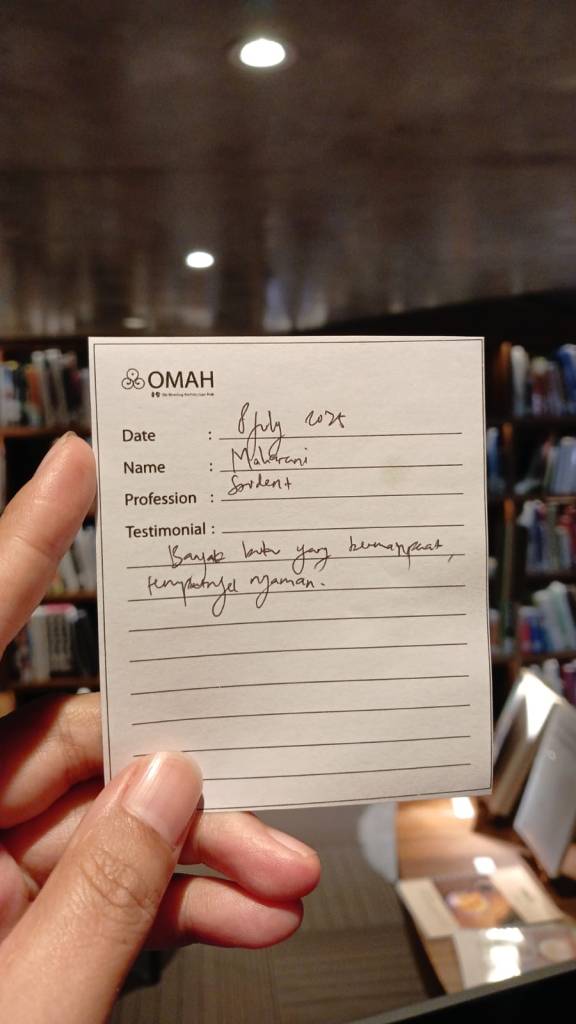 OMAH
Date : 8 July 2025
Name : Maharani
Profession : Student
Testimonial :
Banyak buku yang bermanfaat,
tempatnya nyaman.